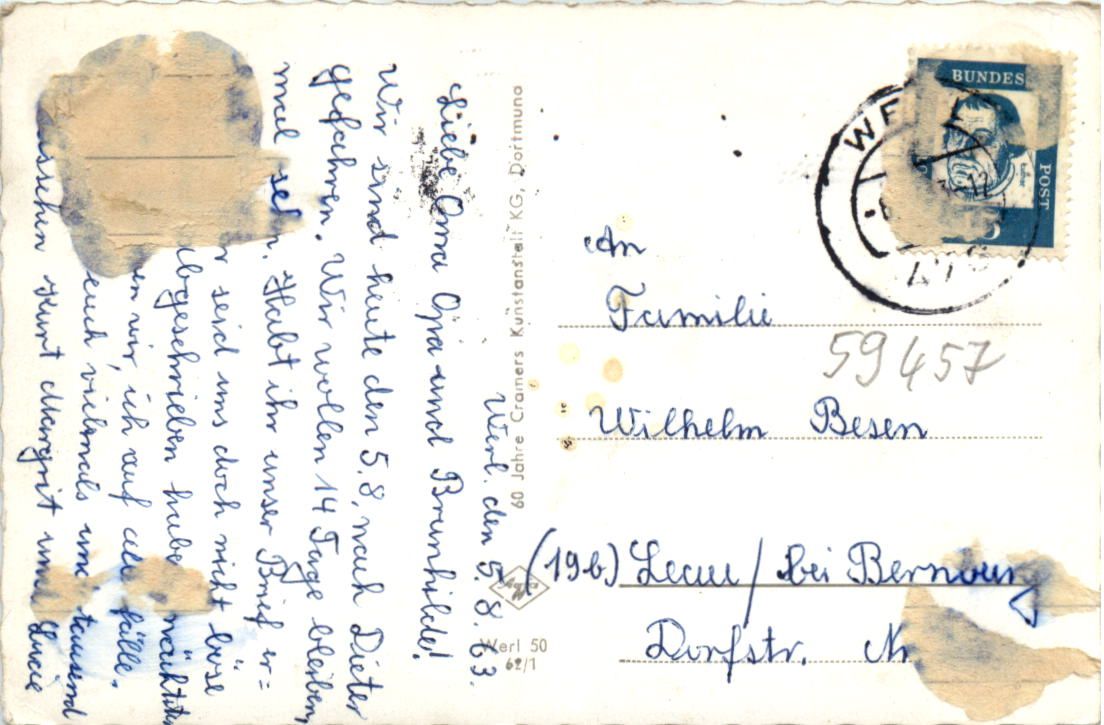 Werl. den 5.8.63.
Liebe Oma Opa und Brunhilde!
Wir sind heute den 5.8. nach Dieter
gefahren. Wir wollen 14 Tage bleiben,
mal sehen. Habt ihr unser Brief er=
seid uns doch nicht böse
abgeschrieben habe
wir, ich auf alle fälle.
euch vielmals und tausend
Kurt Margrit und Lucie
60 Jahre Cramers Kunstanstalt KG, Dortmund
Werl 50
62/1
BUNDES
POST
An
Familie
59457
Wilhelm Besen
(19b.) Lecue / bei Bernburg
Dorfstr. Nr